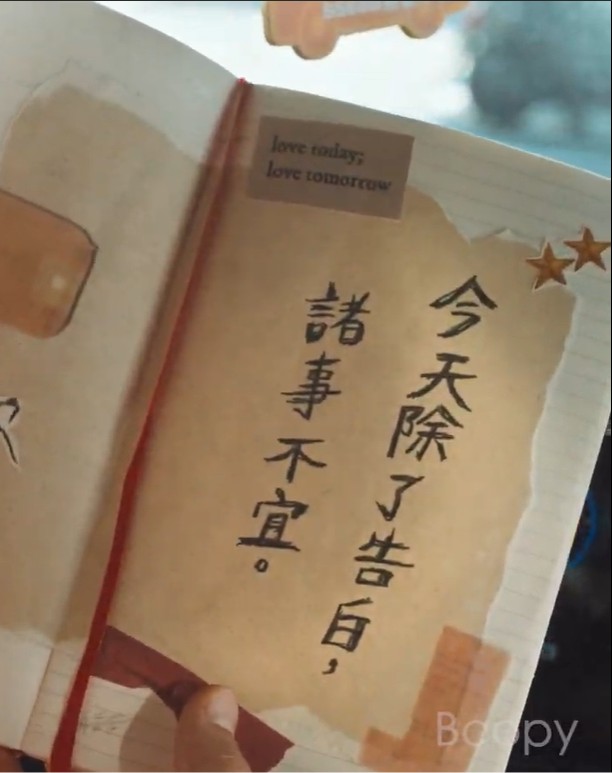 love today;
love tomorrow
今天除了告白，
諸事不宜。
Boopy